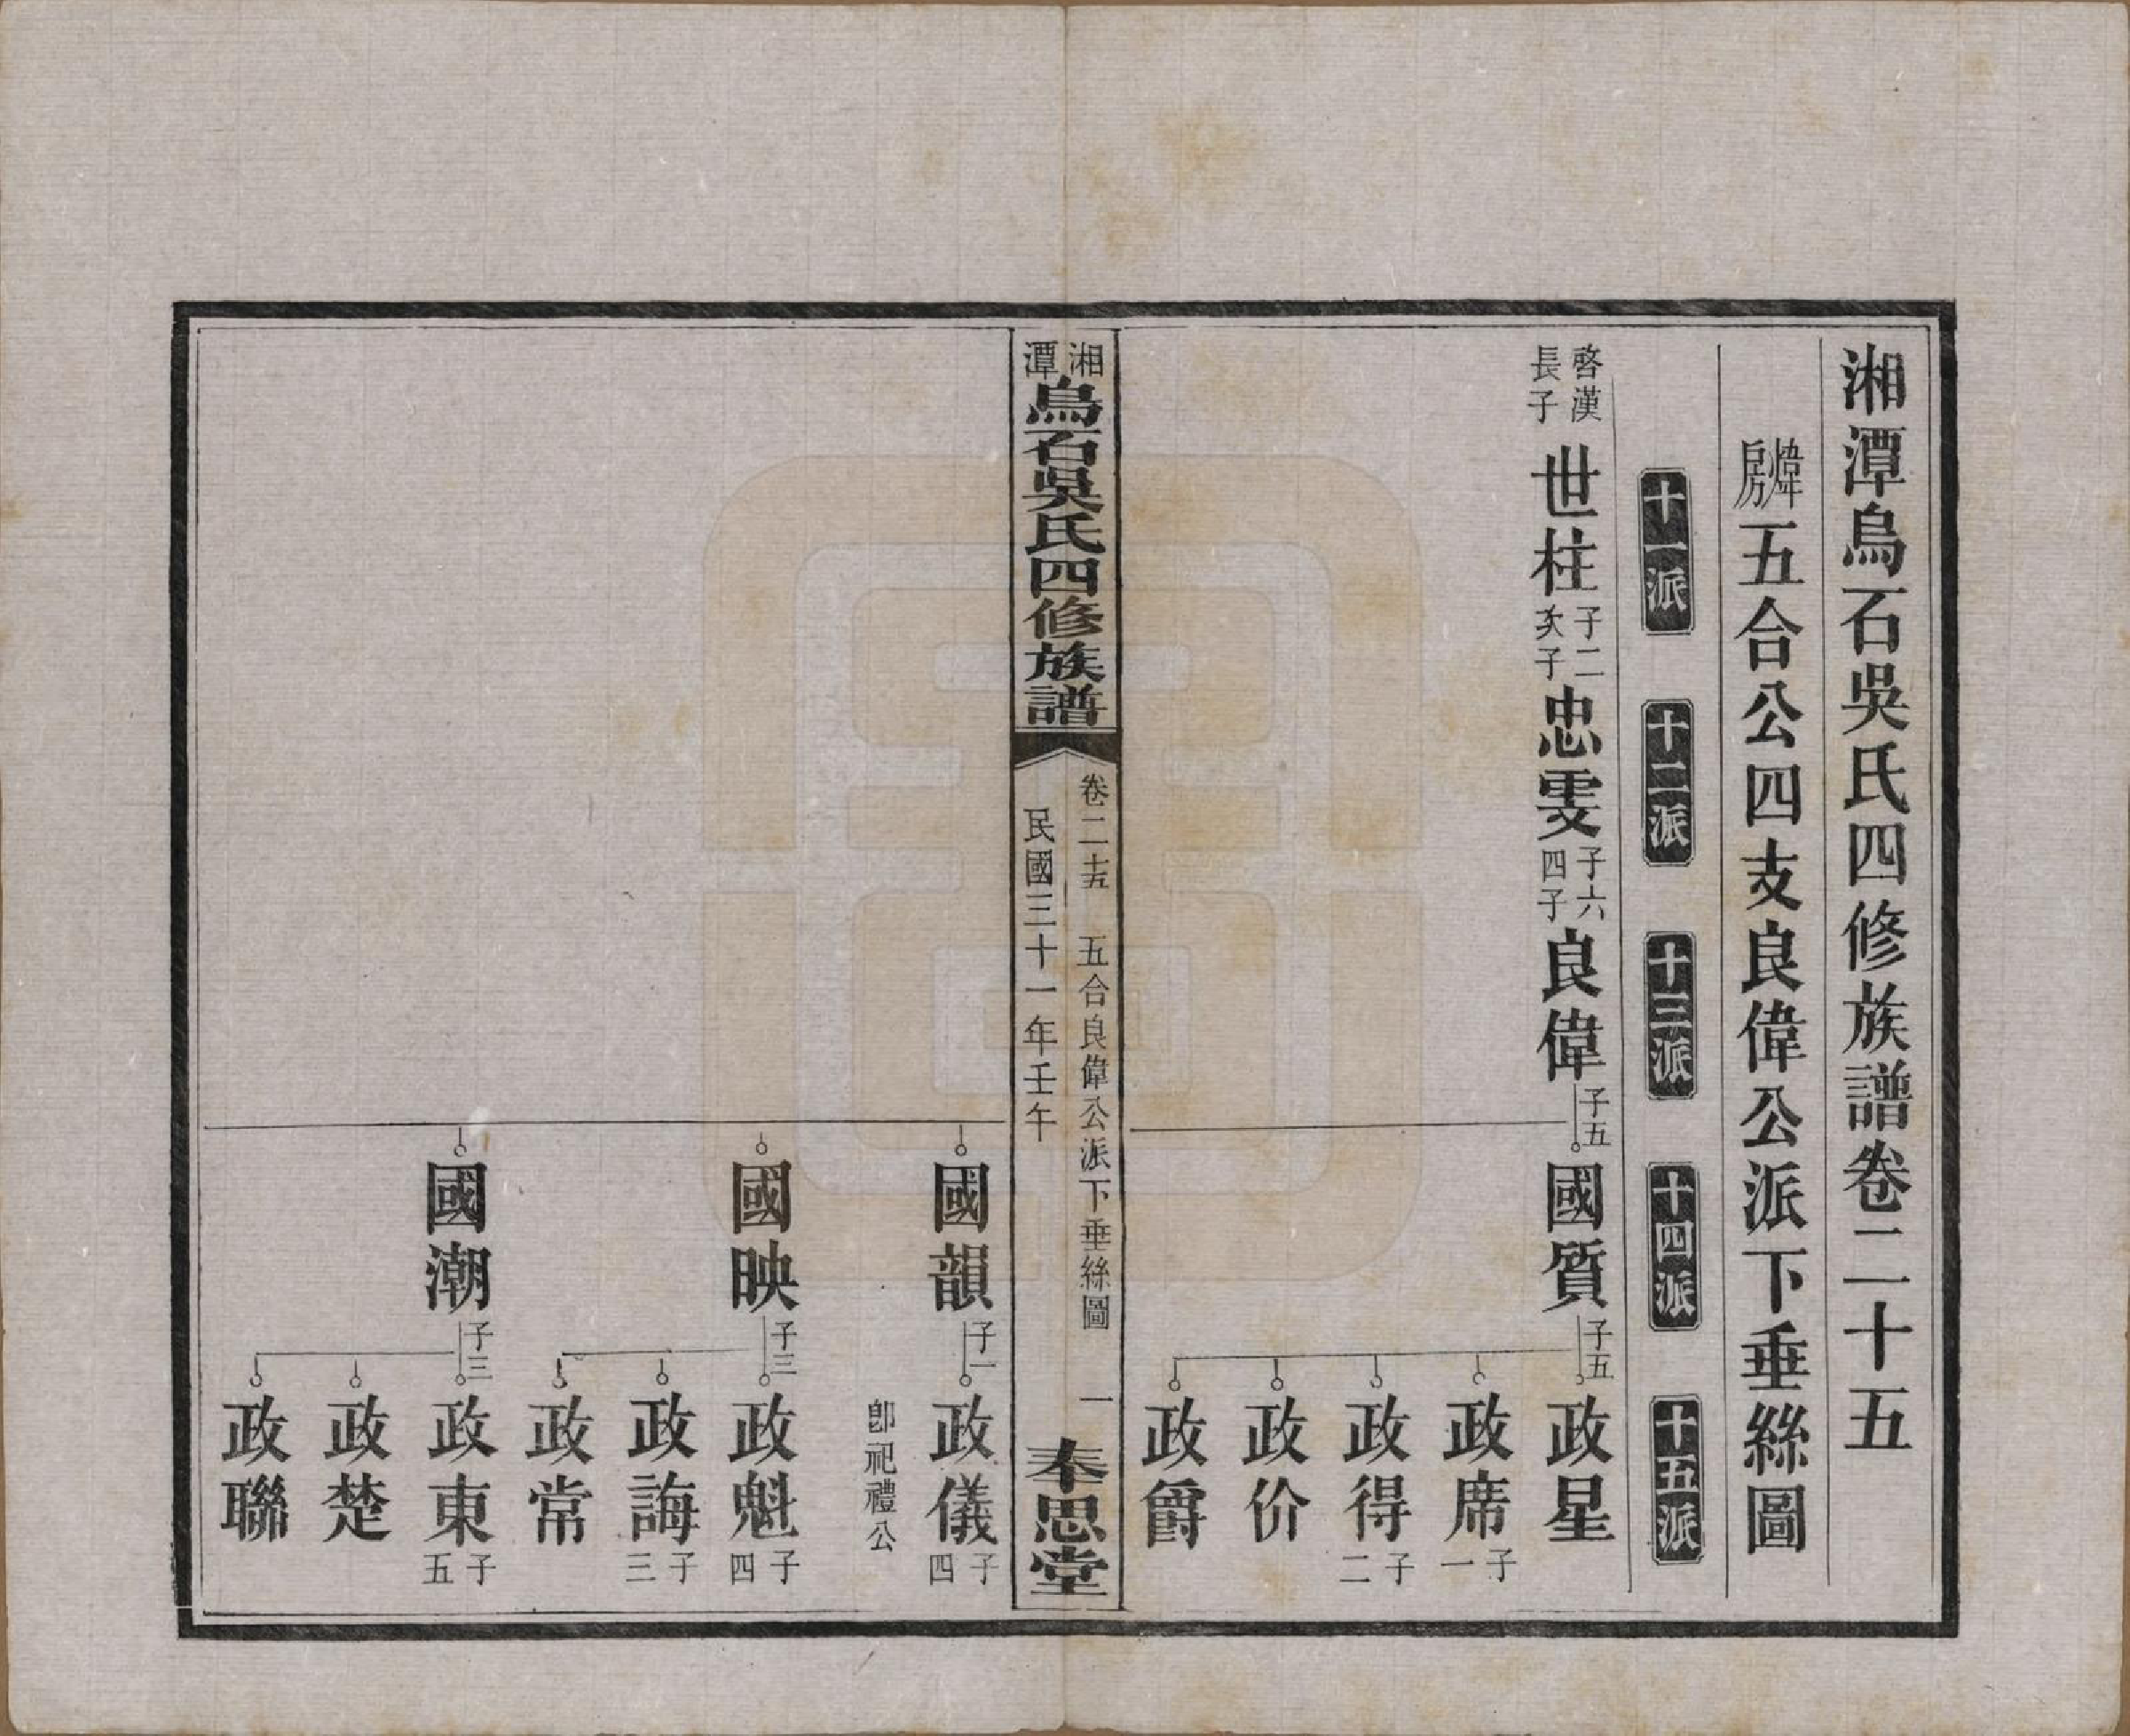 湘潭烏石吳氏四修族譜卷二十五
煒房五合公四支良偉公派下垂絲圖
十一派
十二派
十三派
十四派
十五派
啓漢長子世柱子二次子忠雯子六四子良偉子五國質子五政星
政席子一
政得子二
政价
政爵
湘潭烏石吳氏四修族譜
卷二十五 五合良偉公派下垂絲圖 一
民國三十一年壬午
奉思堂
國韻子一政儀子四
卽祀禮公
國映子三政魁子四
政誨子三
政常
國潮子三政東子五
政楚
政聯